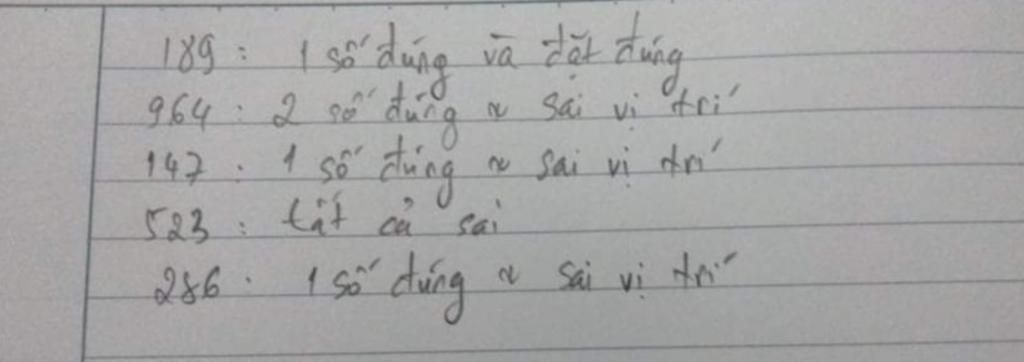 189 : 1 số đúng và đặt đúng
964 : 2 số đúng ~ sai vị trí
147 : 1 số đúng ~ sai vị trí
523 : tất cả sai
286 . 1 số đúng ~ sai vị trí